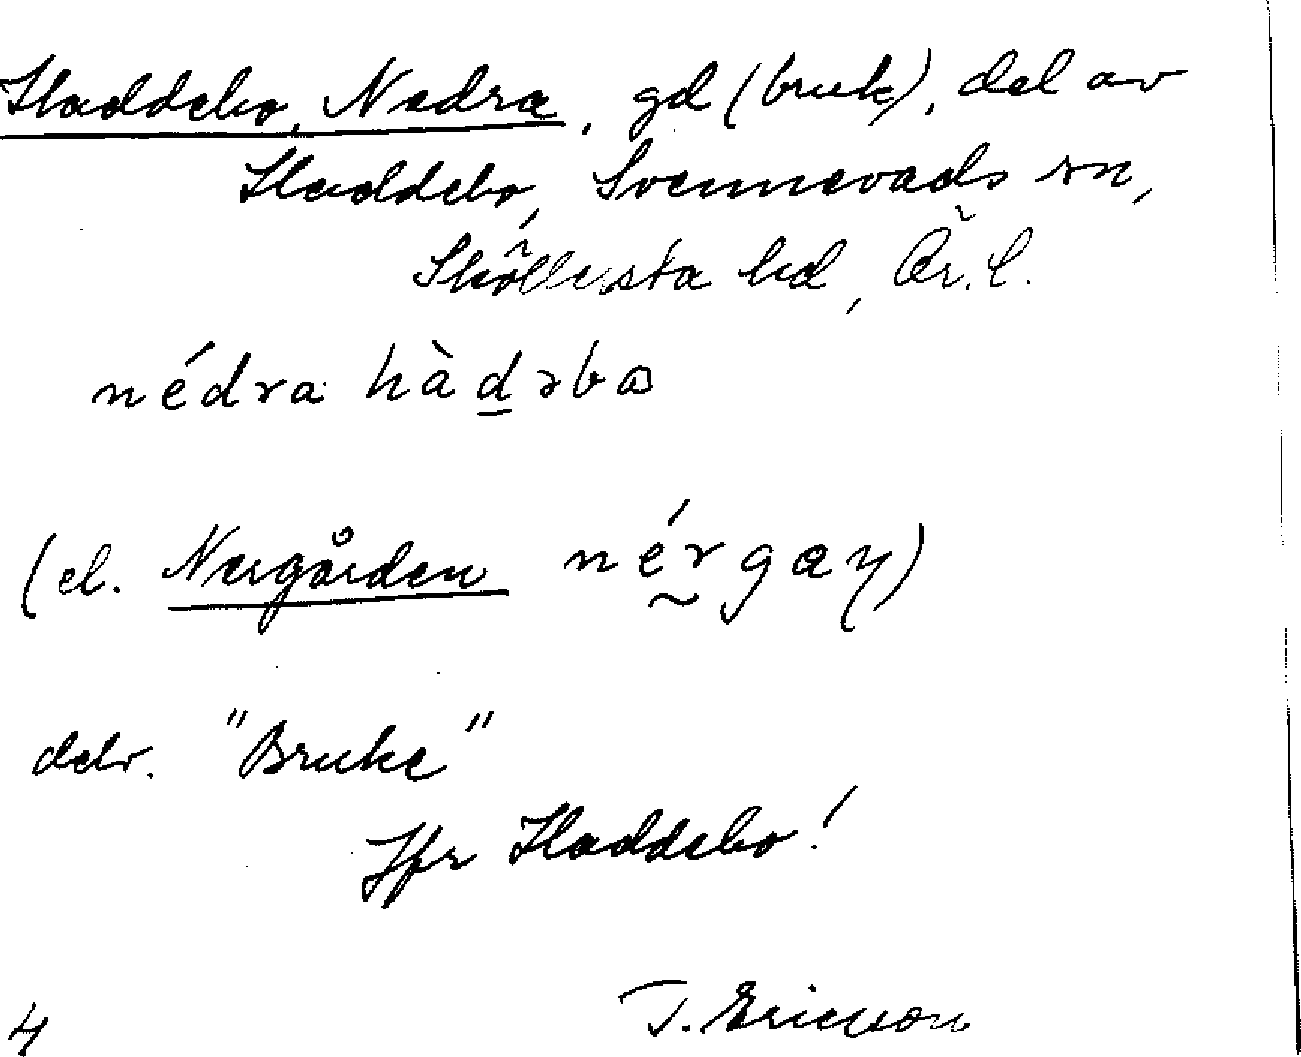 Haddebo, Nedra, gd (bruk), del av
Haddebo, Svennevads sn,
Sköllersta hd, Ör. l.
nédra hàdəbω
(el. Nergården nérgaɳ)
delv. "Bruke"
Jfr Haddebo!
4 T. Ericsson